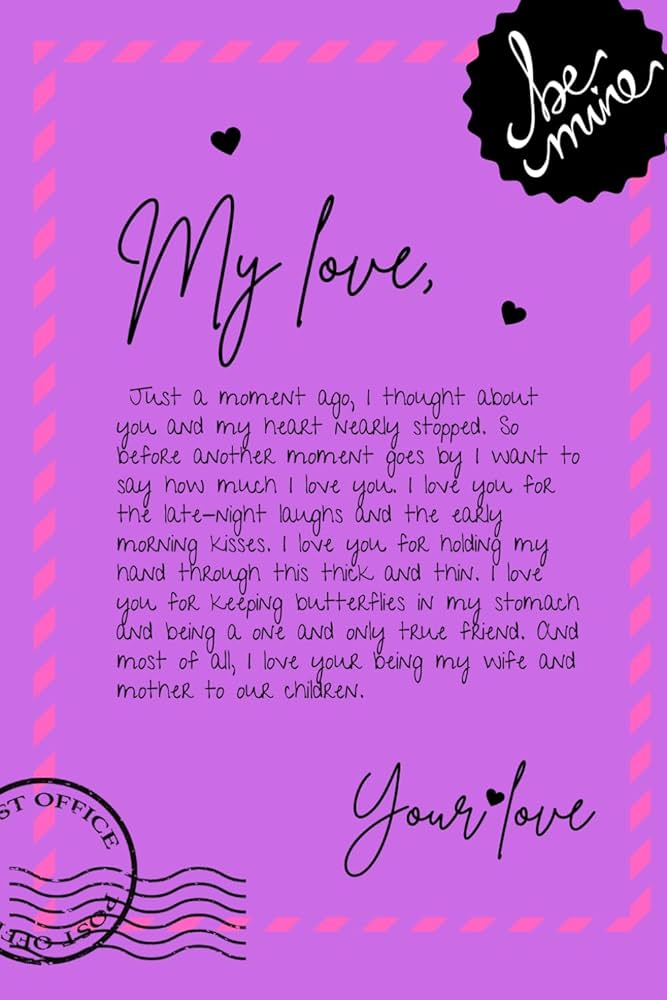 be
mine
My love,
Just a moment ago, I thought about
you and my heart nearly stopped. So
before another moment goes by I want to
say how much I love you. I love you for
the late-night laughs and the early
morning kisses. I love you for holding my
hand through this thick and thin. I love
you for keeping butterflies in my stomach
and being a one and only true friend. And
most of all, I love your being my wife and
mother to our children.
Your love
ST OFFICE
POST OFF